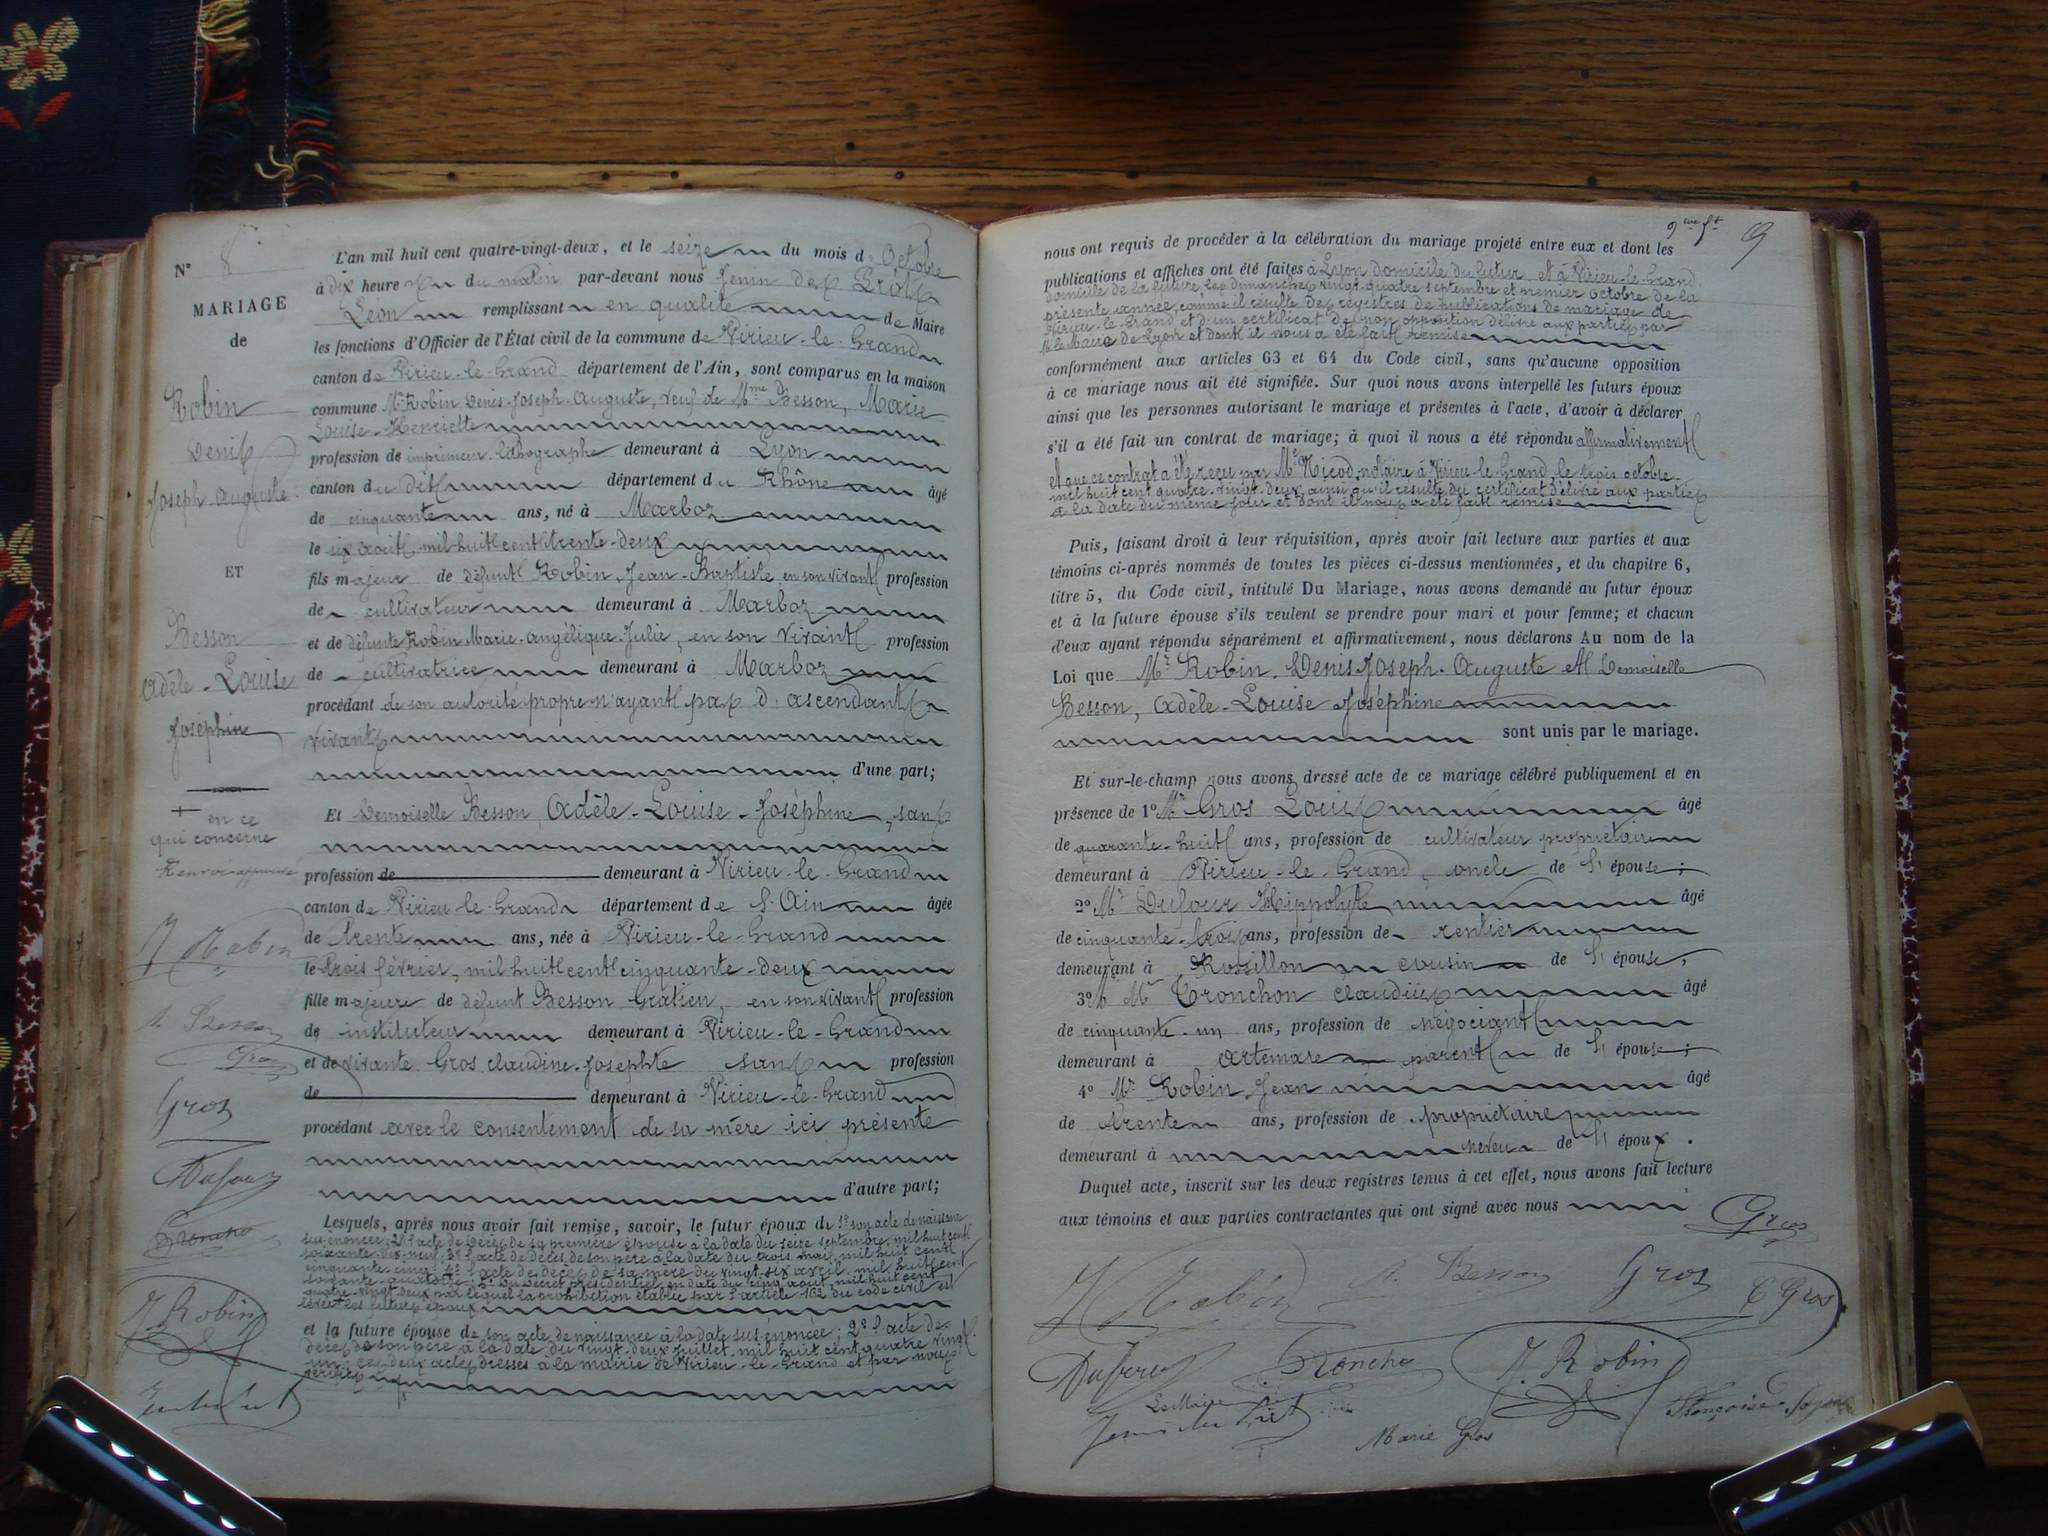 N° 8
MARIAGE
de
Robin
Denis
Joseph Auguste
ET
Besson
Adèle-Louise
Joséphine
+ en ce
qui concerne
Renvoi approuvé
Gros
Gros
Dufour
J. Robin
L'an mil huit cent quatre-vingt-deux, et le seize du mois d'Octobre
à dix heures du matin par-devant nous Jenin des Prôts
Léon remplissant en qualité de Maire
les fonctions d'Officier de l'État civil de la commune de Virieu-le-Grand
canton de Virieu-le-Grand département de l'Ain, sont comparus en la maison
commune Mr Robin Denis-Joseph-Auguste, veuf de Mme Besson, Marie
Louise-Henriette
profession de imprimeur-lithographe demeurant à Lyon
canton du dit département du Rhône âgé
de cinquante ans, né à Marboz
le six août mil huit cent trente-deux
fils majeur de défunt Robin Jean-Baptiste en son vivant profession
de cultivateur demeurant à Marboz
et de défunte Robin Marie-Angélique-Julie, en son vivant profession
de cultivatrice demeurant à Marboz
procédant de son autorité propre n'ayant pas d'ascendants
vivants
d'une part;
Et Demoiselle Besson, Adèle-Louise-Joséphine, sans
profession de demeurant à Virieu-le-Grand
canton de Virieu le Grand département de l'Ain âgée
de trente ans, née à Virieu-le-Grand
le trois février, mil huit cent cinquante-deux
fille majeure de défunt Besson Gratien, en son vivant profession
de instituteur demeurant à Virieu-le-Grand
et de vivante Gros Claudine-Josephte sans profession
de demeurant à Virieu-le-Grand
procédant avec le consentement de sa mère ici présente
d'autre part;
Lesquels, après nous avoir fait remise, savoir, le futur époux de 1° son acte de naissance
sus-énoncé; 2° l'acte de décès de sa première épouse à la date du seize septembre mil huit cent
soixante-dix-neuf; 3° l'acte de décès de son père à la date du trois mai mil huit cent
cinquante cinq; 4° l'acte de décès de sa mère du vingt-six avril mil huit cent
soixante quatorze; 5° du décret présidentiel en date du cinq août mil huit cent
quatre-vingt deux par lequel la prohibition établie par l'article 162 du code civil est
levée + les futurs époux
et la future épouse de son acte de naissance à la date sus-énoncée; 2° l'acte de
décès de son père à la date du vingt-deux juillet mil huit cent quatre vingt
un; ces deux actes dressés à la mairie de Virieu-le-Grand et par nous
vérifiés
9me ft
nous ont requis de procéder à la célébration du mariage projeté entre eux et dont les
publications et affiches ont été faites à Lyon domicile du futur et à Virieu-le-Grand
domicile de la future, les dimanches vingt-quatre septembre et premier octobre de la
présente année, comme il résulte des registres de publications de mariage de
Virieu-le-Grand et d'un certificat de non opposition délivré aux parties par
M. le Maire de Lyon et dont il nous a été fait remise
conformément aux articles 63 et 64 du Code civil, sans qu'aucune opposition
à ce mariage nous ait été signifiée. Sur quoi nous avons interpellé les futurs époux
ainsi que les personnes autorisant le mariage et présentes à l'acte, d'avoir à déclarer
s'il a été fait un contrat de mariage; à quoi il nous a été répondu affirmativement
et que ce contrat a été reçu par Me Nicod, notaire à Virieu-le-Grand, le trois octobre
mil huit cent quatre-vingt-deux ainsi qu'il résulte du certificat délivré aux parties
à la date du même jour et dont il nous a été fait remise
Puis, faisant droit à leur réquisition, après avoir fait lecture aux parties et aux
témoins ci-après nommés de toutes les pièces ci-dessus mentionnées, et du chapitre 6,
titre 5, du Code civil, intitulé Du Mariage, nous avons demandé au futur époux
et à la future épouse s'ils veulent se prendre pour mari et pour femme; et chacun
d'eux ayant répondu séparément et affirmativement, nous déclarons Au nom de la
Loi que Mr Robin, Denis-Joseph-Auguste et Demoiselle
Besson, Adèle-Louise Joséphine
sont unis par le mariage.
Et sur-le-champ nous avons dressé acte de ce mariage célébré publiquement et en
présence de 1° Mr Gros Louis âgé
de quarante-huit ans, profession de cultivateur propriétaire
demeurant à Virieu-le-Grand, oncle de l'épouse;
2° Mr Dufour Hippolyte, âgé
de cinquante-trois ans, profession de rentier
demeurant à Rossillon cousin de l'épouse,
3° M Mr Tronchon Claudius âgé
de cinquante-un ans, profession de négociant
demeurant à Artemare parent de l'épouse;
4° Mr Robin, Jean âgé
de trente ans, profession de propriétaire
demeurant à neveu de l'époux.
Duquel acte, inscrit sur les deux registres tenus à cet effet, nous avons fait lecture
aux témoins et aux parties contractantes qui ont signé avec nous
Gros
A. Besson Gros C Gros
Dufour Tronchon J. Robin
Le Maire
Marie Gros